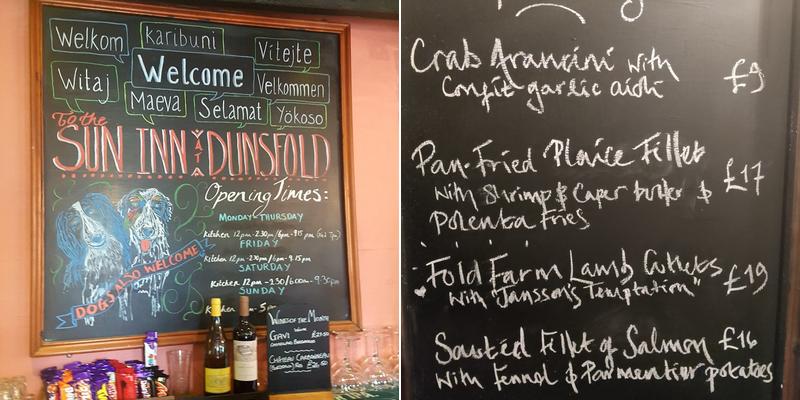 Welkom
karibuni
Vítejte
Witaj
Welcome
Velkommen
Maeva
Selamat
Yōkoso
To the
SUN INN
DUNSFOLD
Opening Times:
MONDAY - THURSDAY
Kitchen 12pm - 2.30pm / 6pm - 9.15pm
FRIDAY
Kitchen 12pm - 2.30pm / 6pm - 9.15pm
SATURDAY
Kitchen 12pm - 2.30 / 6.00pm - 9.30pm
SUNDAY
5pm
DOGS ALSO WELCOME
WINES OF THE MONTH
GAVI
CHÂTEAU
Crab Arancini with
Confit garlic aioli
£9
Pan-Fried Plaice Fillet
with Shrimp & Caper butter &
Polenta Fries
£17
Fold Farm Lamb Cutlets
with "Jansson's Temptation"
£19
Sautéd Fillet of Salmon £16
with Fennel & Parmentier potatoes